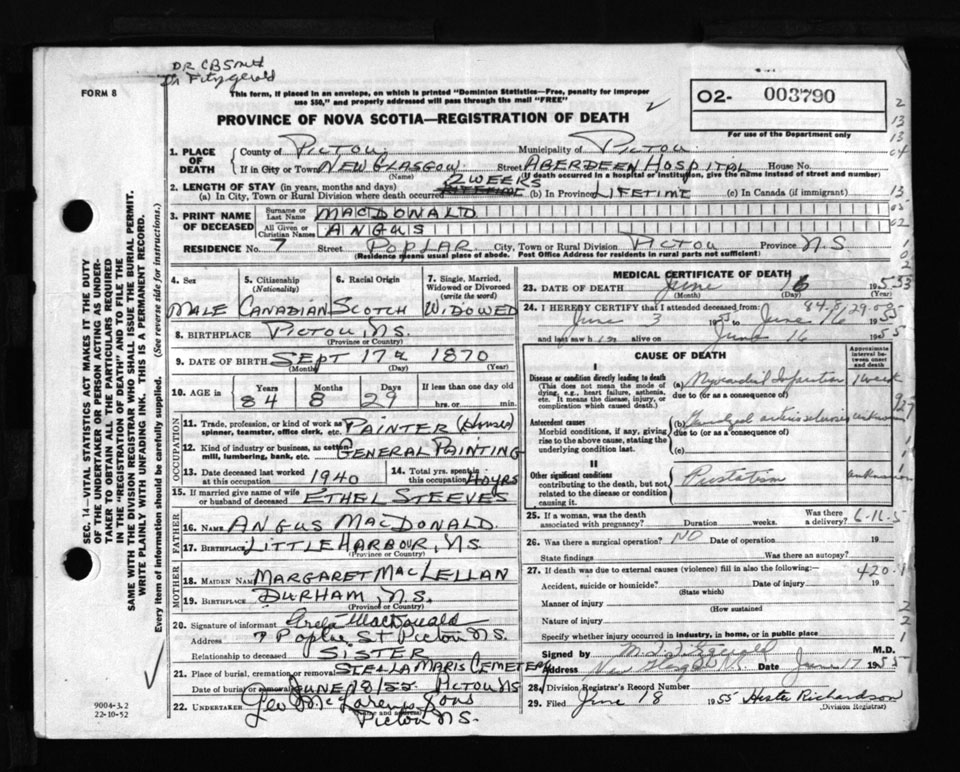 DR CB Smith
Dr Fitzgerald
FORM 8
This form, if placed in an envelope, on which is printed "Dominion Statistics—Free, penalty for improper
use $50," and properly addressed will pass through the mail "FREE"
02- 003790
For use of the Department only
PROVINCE OF NOVA SCOTIA—REGISTRATION OF DEATH
1. PLACE OF DEATH
County of PICTOU Municipality of PICTOU
If in City or Town NEW GLASGOW Street ABERDEEN HOSPITAL House No.
(Name) (If death occurred in a hospital or institution, give the name instead of street and number)
2. LENGTH OF STAY (in years, months and days)
(a) In City, Town or Rural Division where death occurred 2 WEEKS (b) In Province LIFETIME (c) In Canada (if immigrant)
3. PRINT NAME OF DECEASED
Surname or Last Name MACDONALD
All Given or Christian Names ANGUS
RESIDENCE No. 7 Street POPLAR City, Town or Rural Division PICTOU Province N.S
(Residence means usual place of abode. Post Office Address for residents in rural parts not sufficient)
4. Sex
MALE
5. Citizenship (Nationality)
CANADIAN
6. Racial Origin
SCOTCH
7. Single, Married, Widowed or Divorced (write the word)
WIDOWED
8. BIRTHPLACE PICTOU, N.S.
(Province or Country)
9. DATE OF BIRTH SEPT 17 1870
(Month) (Day) (Year)
10. AGE in
Years 84
Months 8
Days 29
If less than one day old
hrs. or min.
OCCUPATION
11. Trade, profession, or kind of work as spinner, teamster, office clerk, etc. PAINTER (House)
12. Kind of industry or business, as cotton mill, lumbering, bank, etc. GENERAL PAINTING
13. Date deceased last worked at this occupation 1940
14. Total yrs. spent in this occupation 40 YRS
15. If married give name of wife or husband of deceased ETHEL STEEVES
FATHER
16. NAME ANGUS MACDONALD
17. BIRTHPLACE LITTLE HARBOUR, N.S.
(Province or Country)
MOTHER
18. MAIDEN NAME MARGARET MACLELLAN
19. BIRTHPLACE DURHAM, N.S.
(Province or Country)
20. Signature of informant Greta MacDonald
Address 7 Poplar St Pictou N.S.
Relationship to deceased SISTER
21. Place of burial, cremation or removal STELLA MARIS CEMETERY
Date of burial or removal JUNE 18/55 PICTOU NS
22. UNDERTAKER Geo McLaren & Sons
Pictou N.S.
MEDICAL CERTIFICATE OF DEATH
23. DATE OF DEATH June 16 1955
(Month) (Day) (Year)
24. I HEREBY CERTIFY that I attended deceased from:
June 3 1955 to June 16 1955
and last saw him alive on June 16 1955
CAUSE OF DEATH
Approximate interval between onset and death
I
Disease or condition directly leading to death
(This does not mean the mode of dying, e.g., heart failure, asthenia, etc. It means the disease, injury, or complication which caused death.)
(a) Myocardial Infarction 1 week
due to (or as a consequence of)
Antecedent causes
Morbid conditions, if any, giving rise to the above cause, stating the underlying condition last.
(b) Generalized arteriosclerosis unknown
due to (or as a consequence of)
(c)
II
Other significant conditions
contributing to the death, but not related to the disease or condition causing it.
Prostatism unknown
25. If a woman, was the death associated with pregnancy? Duration weeks. Was there a delivery?
26. Was there a surgical operation? NO Date of operation 19
State findings Was there an autopsy?
27. If death was due to external causes (violence) fill in also the following: 420.1
Accident, suicide or homicide? Date of injury 19
(State which)
Manner of injury
(How sustained
Nature of injury
Specify whether injury occurred in industry, in home, or in public place
Signed by M. Fitzgerald M.D.
Address New Glasgow N.S. Date June 17 1955
28. Division Registrar's Record Number
29. Filed June 18 1955 Hester Richardson
(Division Registrar)
9004-3.2
22-10-52
SEC. 14—VITAL STATISTICS ACT MAKES IT THE DUTY
OF THE UNDERTAKER OR PERSON ACTING AS UNDERTAKER TO OBTAIN ALL THE PARTICULARS REQUIRED
IN THE "REGISTRATION OF DEATH" AND TO FILE THE
SAME WITH THE DIVISION REGISTRAR WHO SHALL ISSUE THE BURIAL PERMIT.
WRITE PLAINLY WITH UNFADING INK. THIS IS A PERMANENT RECORD.
Every item of information should be carefully supplied. (See reverse side for instructions.)